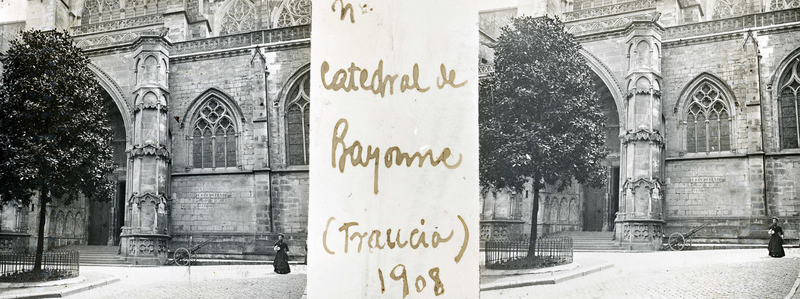 Nº
Catedral de
Bayonne
(Francia)
1908